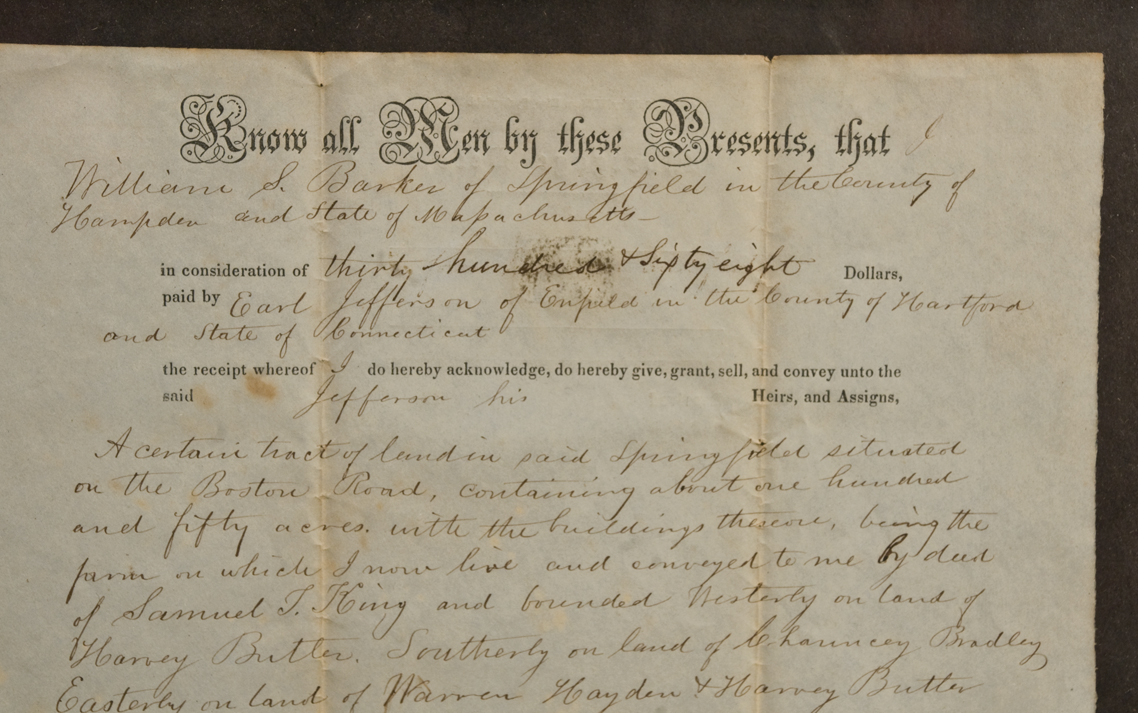 Know all Men by these Presents, that I
William S. Barker of Springfield in the County of
Hampden and State of Massachusetts
in consideration of thirty hundred & Sixty eight Dollars,
paid by Earl Jefferson of Enfield in the County of Hartford
and State of Connecticut
the receipt whereof I do hereby acknowledge, do hereby give, grant, sell, and convey unto the
said Jefferson his Heirs, and Assigns,
A certain tract of land in said Springfield situated
on the Boston Road, containing about one hundred
and fifty acres. with the buildings thereon, being the
farm on which I now live and conveyed to me by deed
of Samuel T. King and bounded Westerly on land of
Harvey Butler. Southerly on land of Chauncey Bradley
Easterly on land of Warren Hayden & Harvey Butler